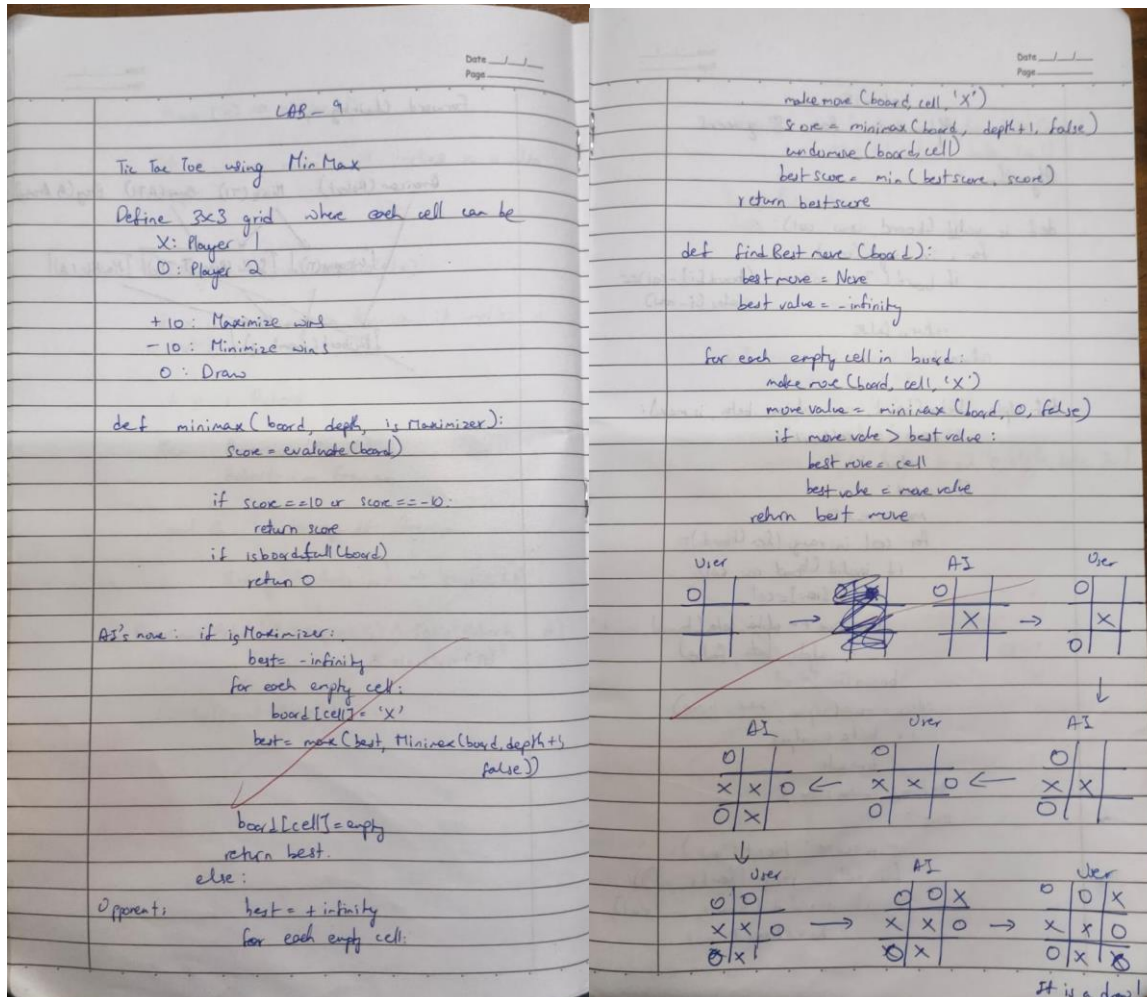 Date __/__/__
Page ____
LAB - 9
Tic Tac Toe using Min Max
Define 3x3 grid where each cell can be
X: Player 1
O: Player 2
+10 : Maximize wins
-10 : Minimize wins
0 : Draw
def minimax (board, depth, is Maximizer):
score = evaluate (board)
if score == 10 or score == -10:
return score
if isboardfull (board)
return 0
AI's move: if is Maximizer:
best = -infinity
for each empty cell:
board [cell] = 'X'
best = max (best, Minimax (board, depth+1,
false))
board [cell] = empty
return best.
else :
Opponent: best = + infinity
for each empty cell:
Date __/__/__
Page ____
make move (board, cell, 'X')
score = minimax (board, depth+1, false)
undomove (board, cell)
best score = min (bestscore, score)
return bestscore
def find Best move (board):
best move = None
best value = -infinity
for each empty cell in board:
make move (board, cell, 'X')
move value = minimax (board, 0, false)
if move value > best value :
best move = cell
best value = move value
return best move
User AI User
O O O
→ X → X
O
↓
AI User AI
O O O
X X O ← X X O ← X X
O X O O
↓
User AI User
O O O O X O O X
X X O → X X O → X X O
O X O X O X O
It is a draw!